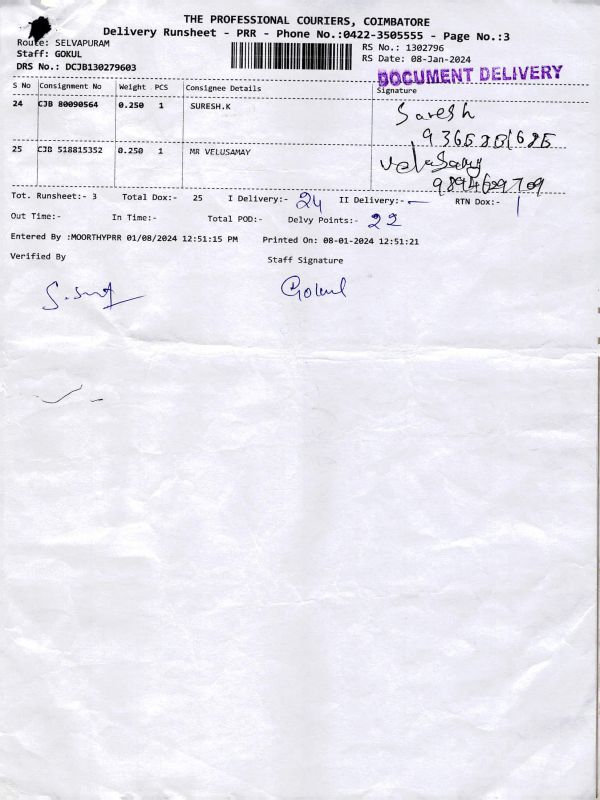 THE PROFESSIONAL COURIERS, COIMBATORE
Delivery Runsheet - PRR - Phone No.:0422-3505555 - Page No.:3
Route: SELVAPURAM
RS No.: 1302796
Staff: GOKUL
RS Date: 08-Jan-2024
DRS No.: DCJB130279603
DOCUMENT DELIVERY
S No Consignment No Weight PCS Consignee Details Signature
24 CJB 80090564 0.250 1 SURESH.K Suresh
25 CJB 518815352 0.250 1 MR VELUSAMAY Velusamy
9894629709
Tot. Runsheet:- 3 Total Dox:- 25 I Delivery:- 24 II Delivery:- - RTN Dox:- 1
Out Time:- In Time:- Total POD:- Delvy Points:- 22
Entered By :MOORTHYPRR 01/08/2024 12:51:15 PM Printed On: 08-01-2024 12:51:21
Verified By Staff Signature
Gokul